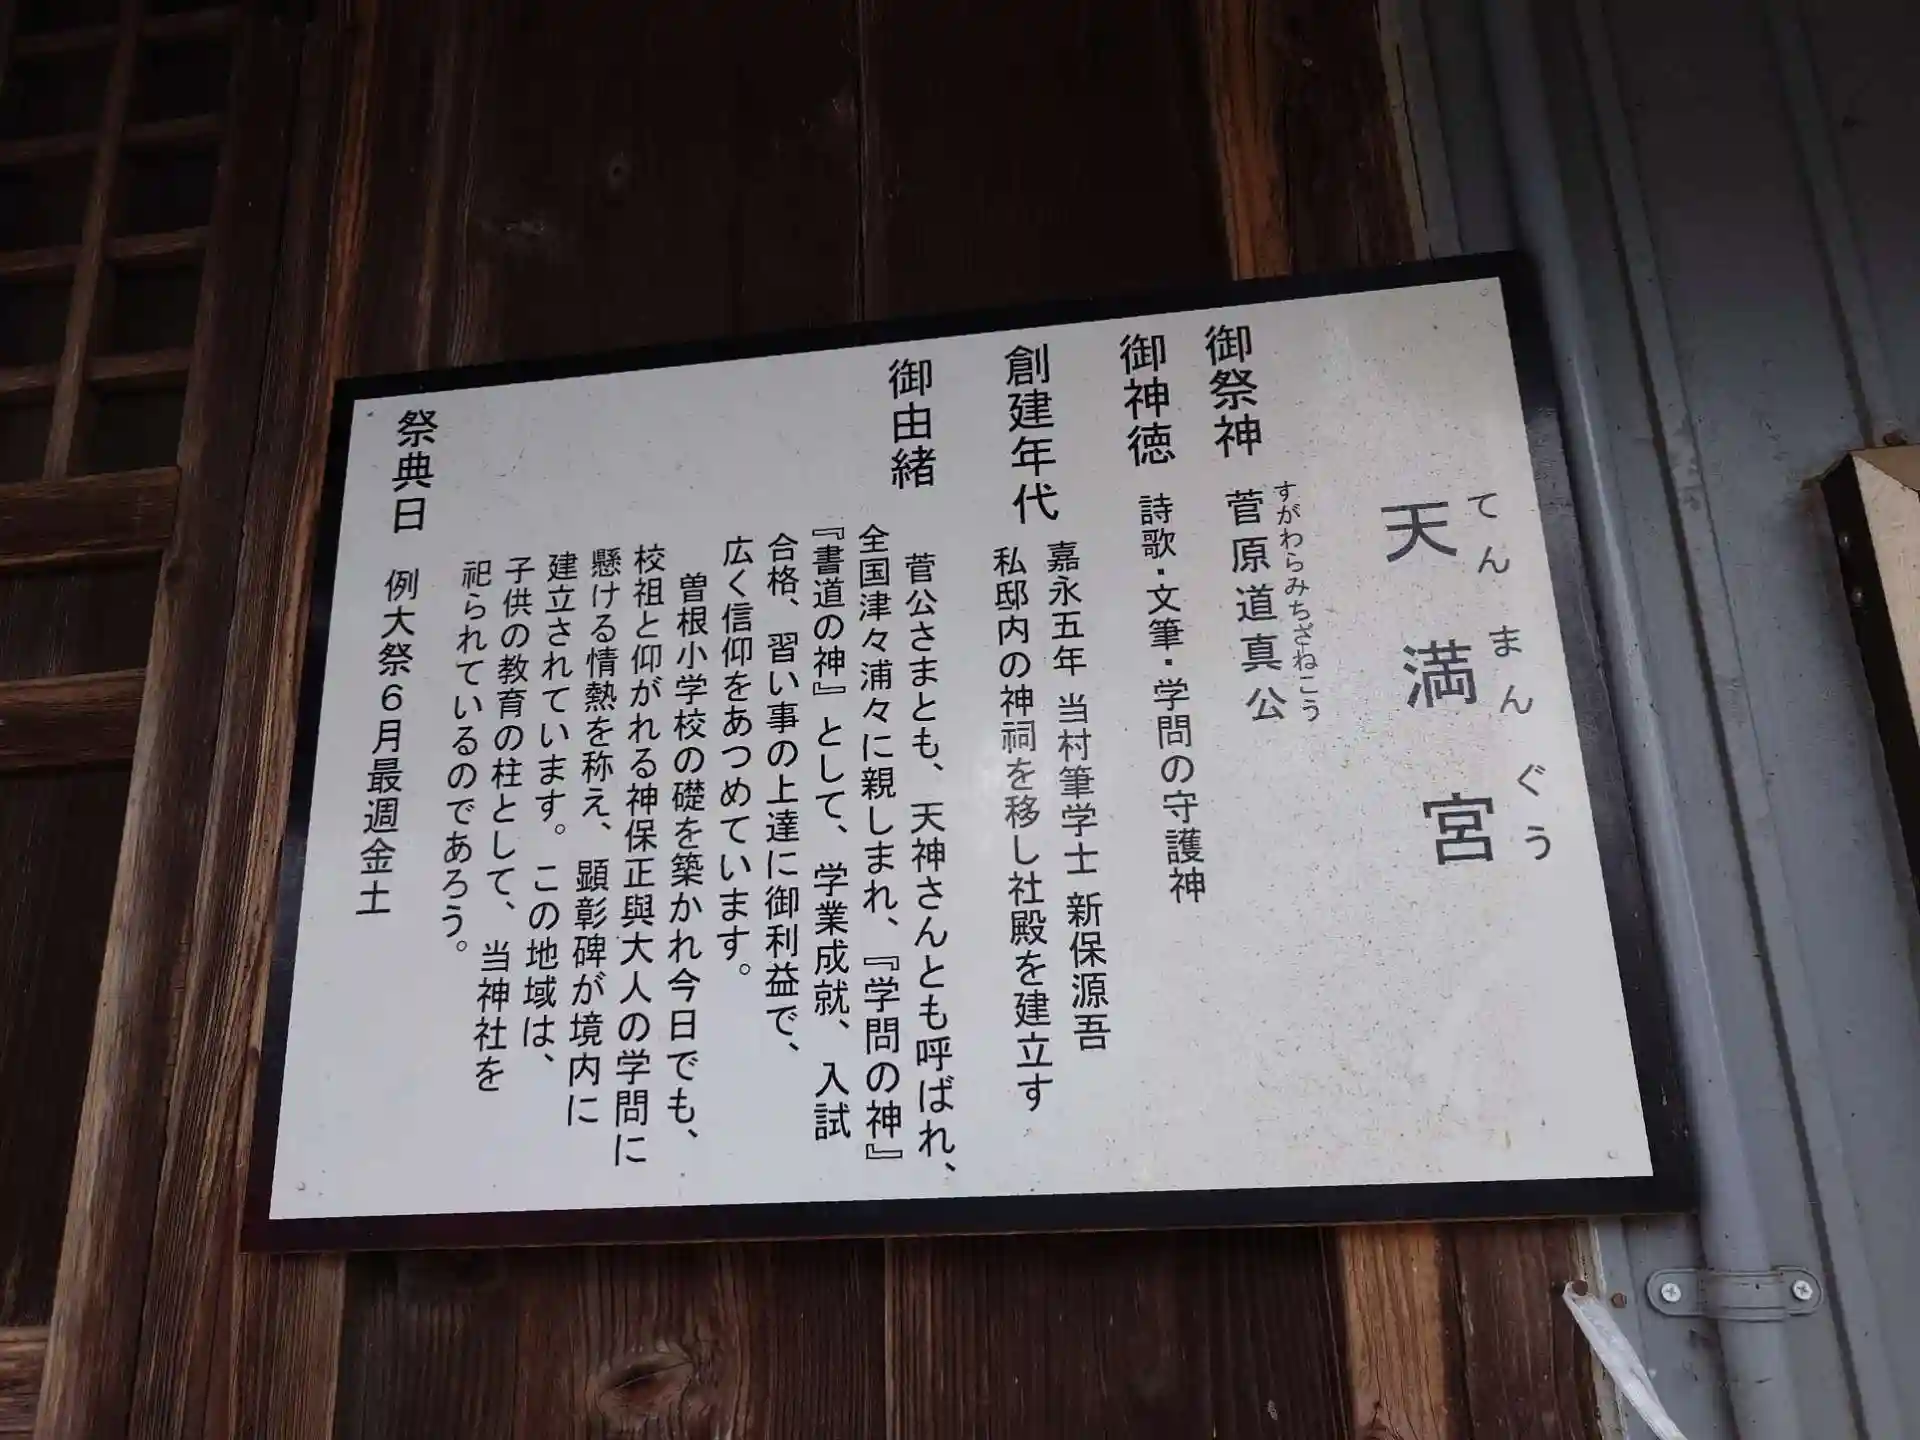 てんまんぐう
天満宮
すがわらみちざねこう
御祭神 菅原道真公
御神徳 詩歌・文筆・学問の守護神
創建年代 嘉永五年 当村筆学士 新保源吾
私邸内の神祠を移し社殿を建立す
御由緒 菅公さまとも、天神さんとも呼ばれ、
全国津々浦々に親しまれ、『学問の神』
『書道の神』として、学業成就、入試
合格、習い事の上達に御利益で、
広く信仰をあつめています。
曽根小学校の礎を築かれ今日でも、
校祖と仰がれる神保正與大人の学問に
懸ける情熱を称え、顕彰碑が境内に
建立されています。この地域は、
子供の教育の柱として、当神社を
祀られているのであろう。
祭典日 例大祭6月最週金土